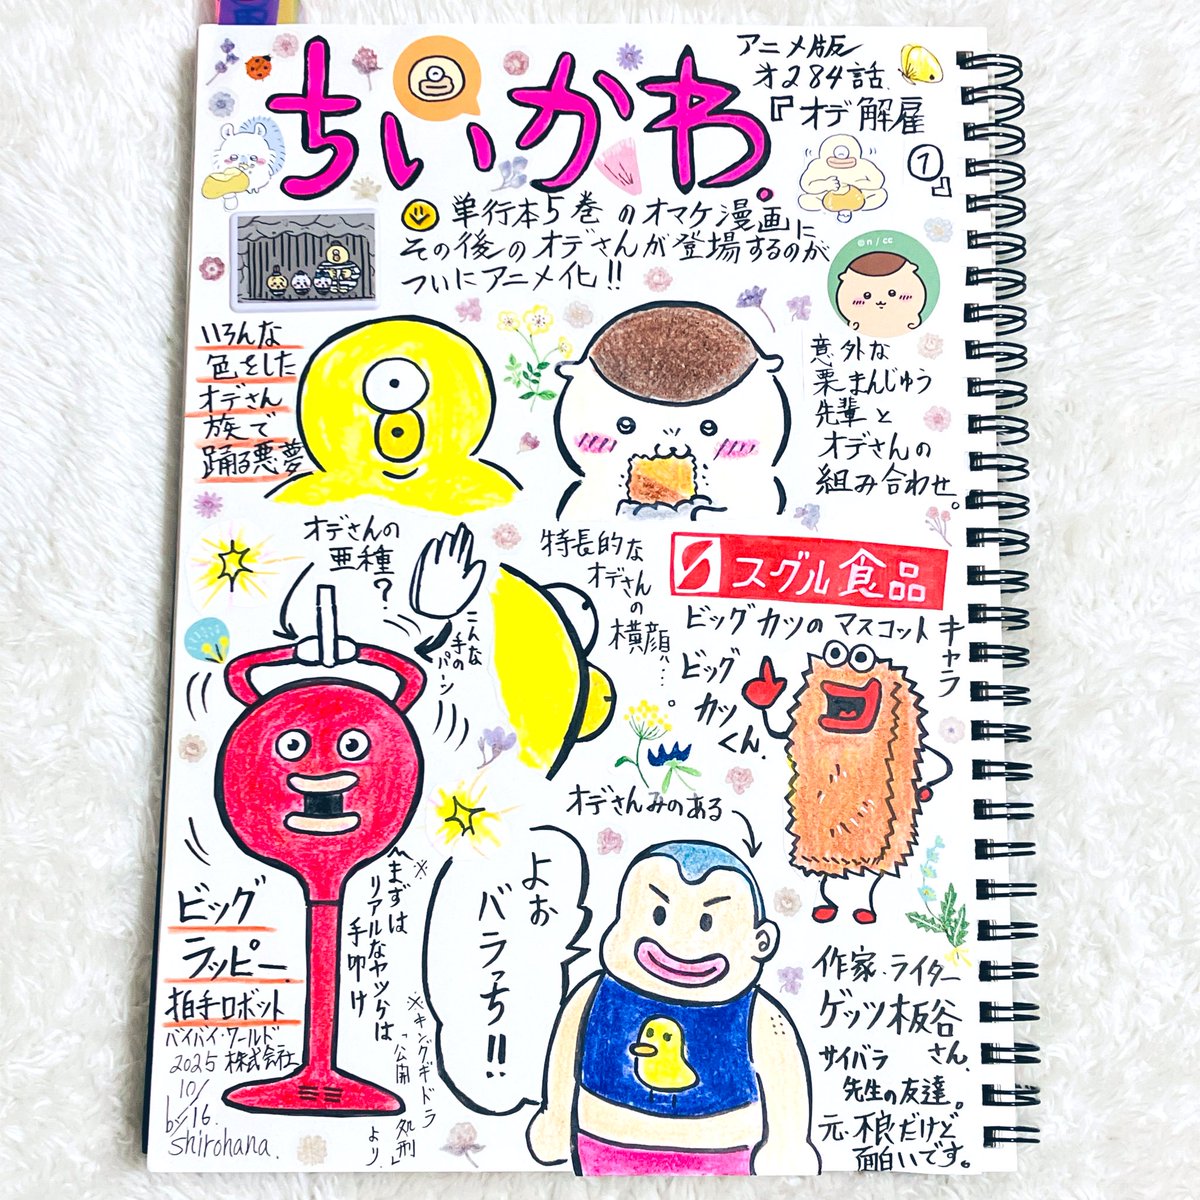 ちいかわ
アニメ版
オ284話
『オデ解雇』
1
単行本5巻のオマケ漫画に
その後のオデさんが登場するのが
ついにアニメ化!!
©n/cc
いろんな
色をした
オデさん
族で
踊る悪夢
意外な
栗まんじゅう
先輩と
オデさんの
組み合わせ。
オデさんの
亜種?
こんな
手の
パーン
特長的な
オデさん
の
横顔…。
スグル食品
ビッグカツのマスコットキャラ
ビッグ
カツ
くん.
オデさんみのある
よぉ
バラっち!!
ビッグ
ラッピー.
拍手ロボット
バイバイ・ワールド
株式会社
※まずは
リアルなヤツらは
手叩け
※キングギドラ
「公開処刑」
より
作家.ライター
ゲッツ板谷
さん.
サイバラ
先生の友達。
元.不良だけど
面白いです。
2025
10/
16.
by
shirohana.